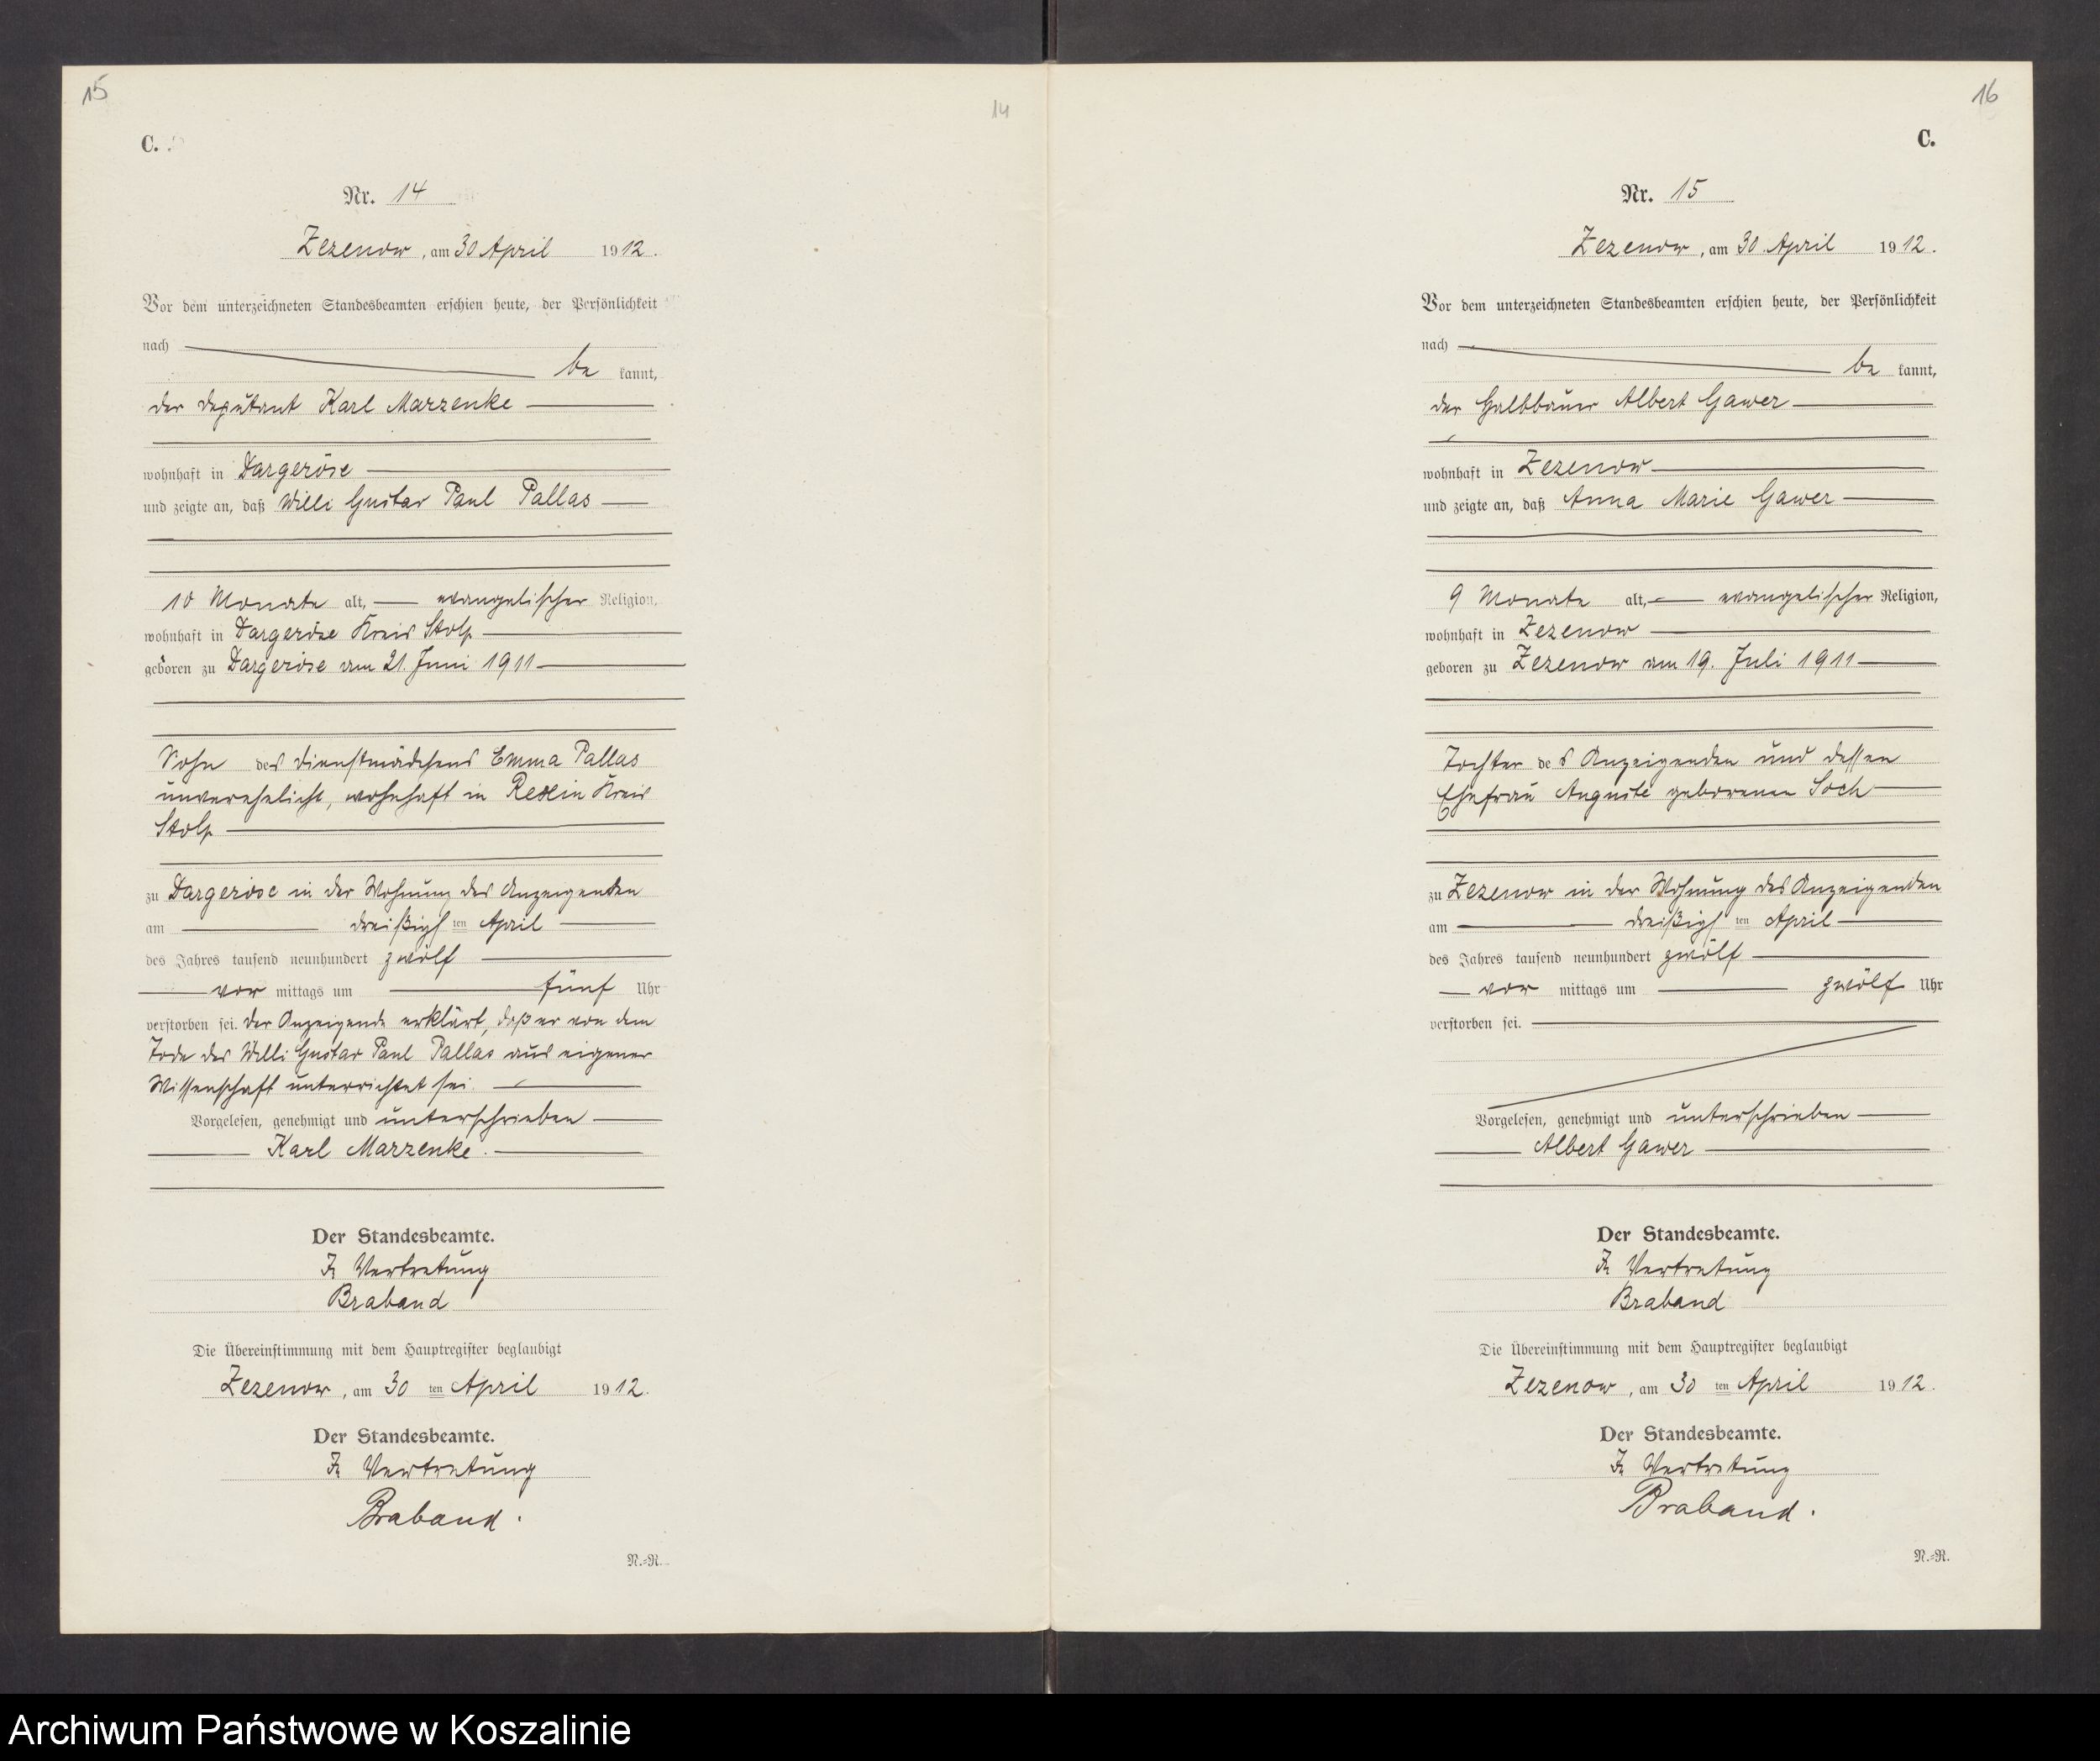 15
14
C.
Nr. 14
Zezenow, am 30 April 1912.
Vor dem unterzeichneten Standesbeamten erschien heute, der Persönlichkeit
nach
be kannt,
der Deputant Karl Marzenke
wohnhaft in Dargeröse
und zeigte an, daß Willi Gustav Paul Pallas
10 Monate alt, evangelischer Religion,
wohnhaft in Dargeröse Kreis Stolp
geboren zu Dargeröse am 21. Juni 1911
Sohn des Dienstmädchens Emma Pallas
unverehelicht, wohnhaft in Rexin Kreis
Stolp
zu Dargeröse in der Wohnung des Anzeigenden
am dreißigs ten April
des Jahres tausend neunhundert zwölf
vor mittags um fünf Uhr
verstorben sei. Der Anzeigende erklärt, daß er von dem
Tode des Willi Gustav Paul Pallas aus eigener
Wissenschaft unterrichtet sei.
Vorgelesen, genehmigt und unterschrieben
Karl Marzenke.
Der Standesbeamte.
In Vertretung
Braband
Die Übereinstimmung mit dem Hauptregister beglaubigt
Zezenow, am 30 ten April 1912.
Der Standesbeamte.
In Vertretung
Braband.
N.-R.
16
C.
Nr. 15
Zezenow, am 30. April 1912.
Vor dem unterzeichneten Standesbeamten erschien heute, der Persönlichkeit
nach
be kannt,
der Halbbauer Albert Gawer
wohnhaft in Zezenow
und zeigte an, daß Anna Marie Gawer
9 Monate alt, evangelischer Religion,
wohnhaft in Zezenow
geboren zu Zezenow am 19. Juli 1911
Tochter des Anzeigenden und dessen
Ehefrau Auguste geborenen Soch
zu Zezenow in der Wohnung des Anzeigenden
am dreißigs ten April
des Jahres tausend neunhundert zwölf
vor mittags um zwölf Uhr
verstorben sei.
Vorgelesen, genehmigt und unterschrieben
Albert Gawer
Der Standesbeamte.
In Vertretung
Braband
Die Übereinstimmung mit dem Hauptregister beglaubigt
Zezenow, am 30 ten April 1912.
Der Standesbeamte.
In Vertretung
Braband.
N.-R.
Archiwum Państwowe w Koszalinie